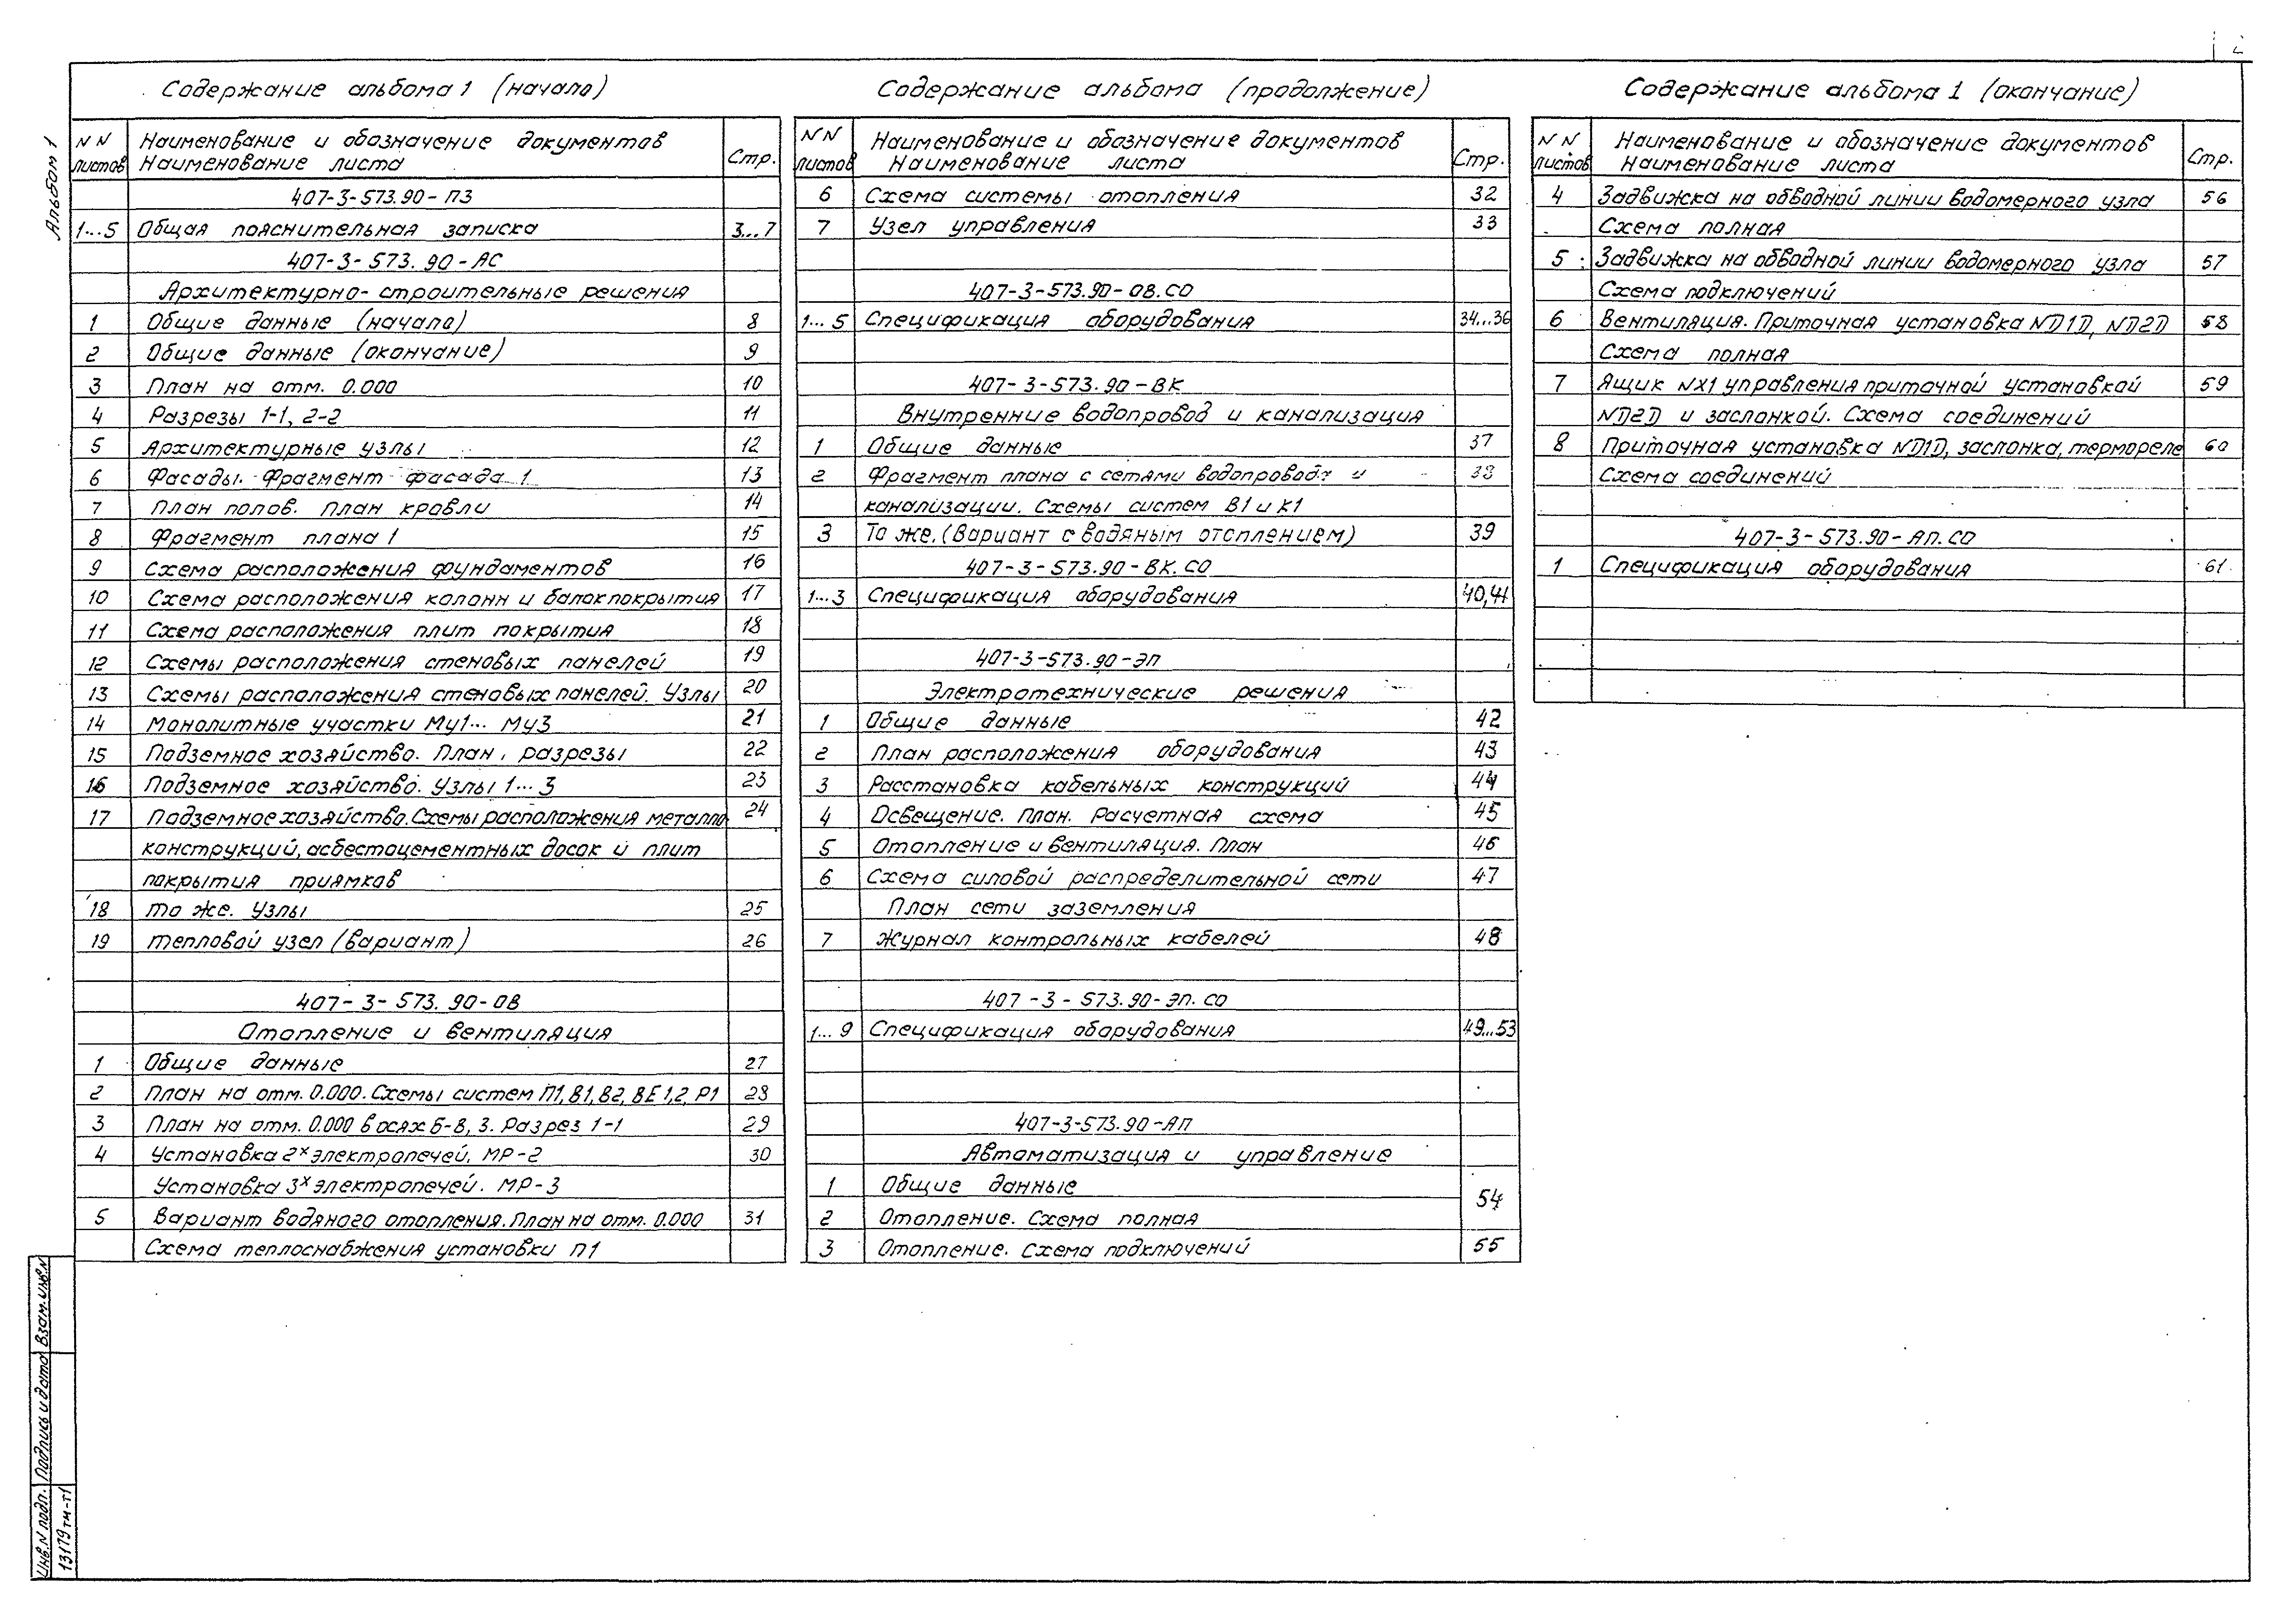 Альбом 1
Содержание альбома 1 (начало)
NN листов Наименование и обозначение документов Наименование листа Стр.
407-3-573.90-ПЗ
1...5 Общая пояснительная записка 3...7
407-3-573.90-АС
Архитектурно-строительные решения
1 Общие данные (начало) 8
2 Общие данные (окончание) 9
3 План на отм. 0.000 10
4 Разрезы 1-1, 2-2 11
5 Архитектурные узлы 12
6 Фасады. Фрагмент фасада 1 13
7 План полов. План кровли 14
8 Фрагмент плана 1 15
9 Схема расположения фундаментов 16
10 Схема расположения колонн и балок покрытия 17
11 Схема расположения плит покрытия 18
12 Схемы расположения стеновых панелей 19
13 Схемы расположения стеновых панелей. Узлы 20
14 Монолитные участки Му1... Му3 21
15 Подземное хозяйство. План, разрезы 22
16 Подземное хозяйство. Узлы 1...3 23
17 Подземное хозяйство. Схемы расположения металло 24
конструкций, асбестоцементных досок и плит
покрытия приямков
18 То же. Узлы 25
19 Тепловой узел (вариант) 26
407-3-573.90-ОВ
Отопление и вентиляция
1 Общие данные 27
2 План на отм. 0.000. Схемы систем П1, В1, В2, ВЕ1,2, Р1 28
3 План на отм. 0.000 в осях Б-В, 3. Разрез 1-1 29
4 Установка 2х электропечей. МР-2 30
Установка 3х электропечей. МР-3
5 Вариант водяного отопления. План на отм. 0.000 31
Схема теплоснабжения установки П1
Содержание альбома (продолжение)
NN листов Наименование и обозначение документов Наименование листа Стр.
6 Схема системы отопления 32
7 Узел управления 33
407-3-573.90-ОВ.СО
1...5 Спецификация оборудования 34...36
407-3-573.90-ВК
Внутренние водопровод и канализация
1 Общие данные 37
2 Фрагмент плана с сетями водопровода и 38
канализации. Схемы систем В1 и К1
3 То же. (Вариант с водяным отоплением) 39
407-3-573.90-ВК.СО
1...3 Спецификация оборудования 40,41
407-3-573.90-ЭП
Электротехнические решения
1 Общие данные 42
2 План расположения оборудования 43
3 Расстановка кабельных конструкций 44
4 Освещение. План. Расчетная схема 45
5 Отопление и вентиляция. План 46
6 Схема силовой распределительной сети 47
План сети заземления
7 Журнал контрольных кабелей 48
407-3-573.90-ЭП.СО
1...9 Спецификация оборудования 49...53
407-3-573.90-АП
Автоматизация и управление
1 Общие данные 54
2 Отопление. Схема полная
3 Отопление. Схема подключений 55
Содержание альбома 1 (окончание)
NN листов Наименование и обозначение документов Наименование листа Стр.
4 Задвижка на обводной линии водомерного узла 56
Схема полная
5 Задвижка на обводной линии водомерного узла 57
Схема подключений
6 Вентиляция. Приточная установка №П1П, №П2П 58
Схема полная
7 Ящик №Х1 управления приточной установкой 59
№П2П и заслонкой. Схема соединений
8 Приточная установка №П1П, заслонка, термореле 60
Схема соединений
407-3-573.90-АП.СО
1 Спецификация оборудования 61
Инв.N подл. Подпись и дата Взам.инв.N
13179тм-т1